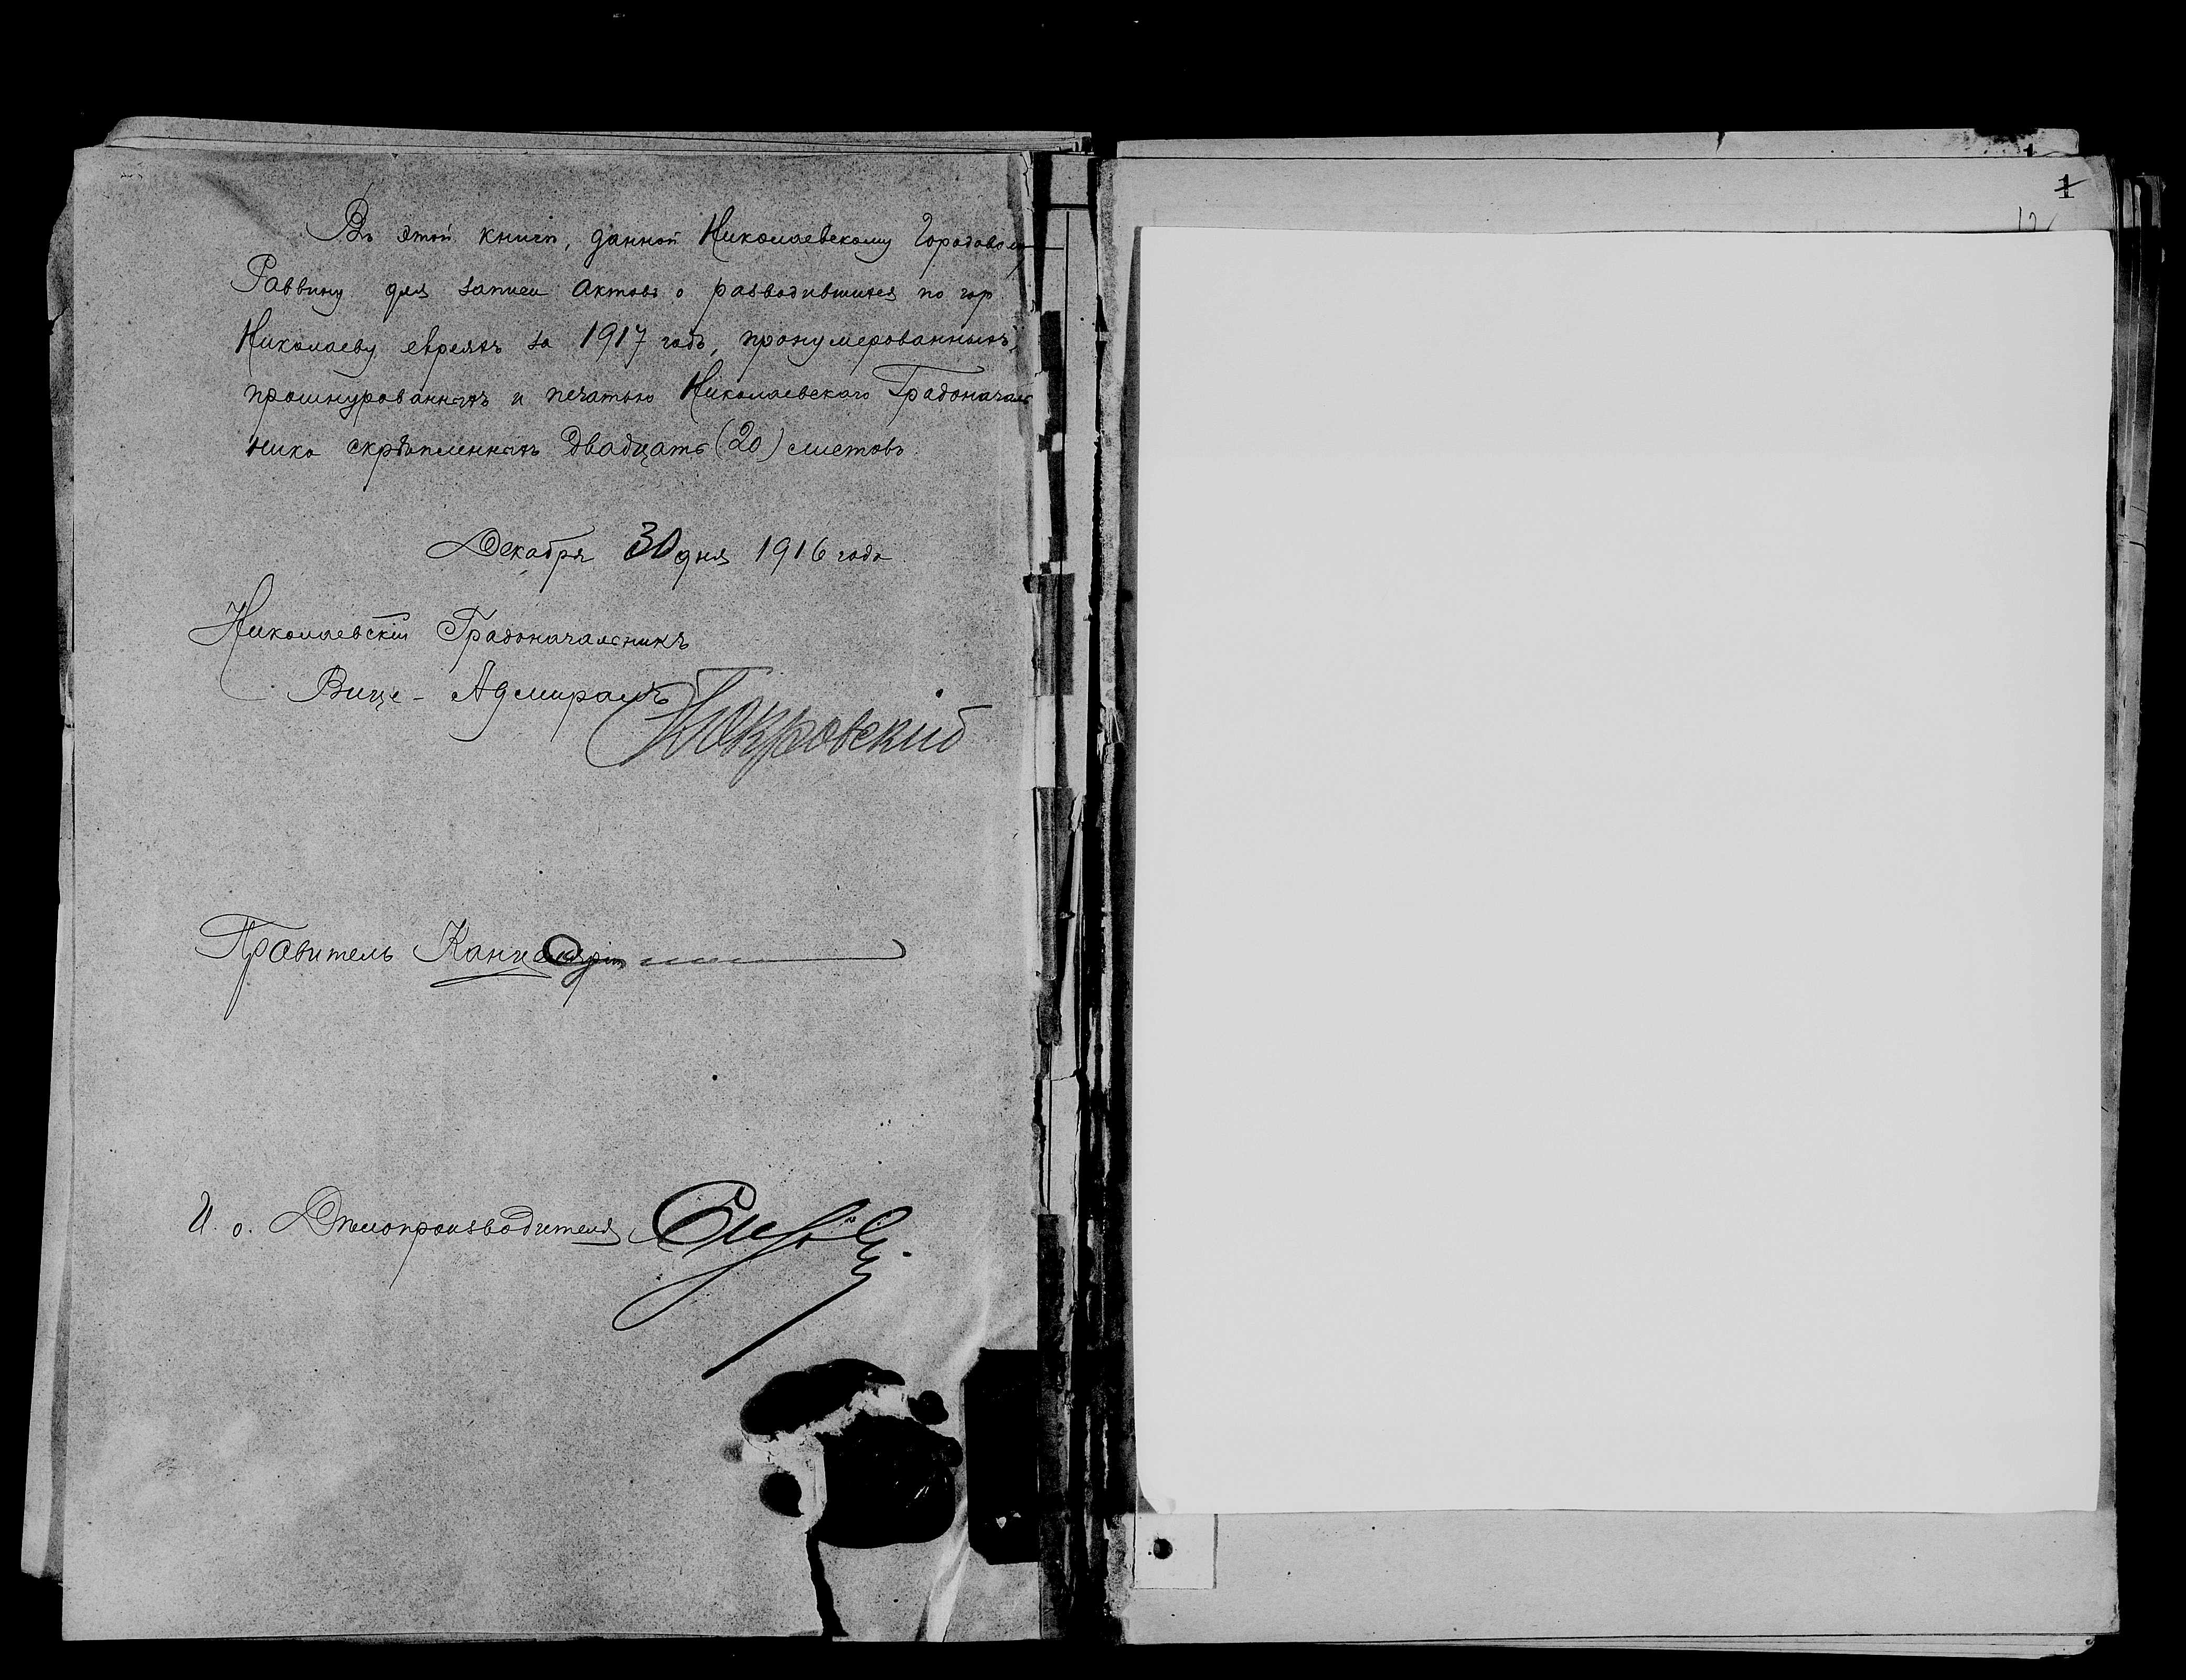 Въ этой книгѣ, данной Николаевскому Городовому
Раввину для записи актовъ о разводившихся по гор.
Николаеву евреяхъ за 1917 годъ, пронумерованныхъ,
прошнурованныхъ и печатью Николаевскаго Градоначаль
ника скрѣпленныхъ двадцать (20) листовъ.
Декабря 30 дня 1916 года
Николаевскій Градоначальникъ
Вице-Адмиралъ Покровский
Правитель Канцеляріи
И. о. Дѣлопроизводителя
1
12